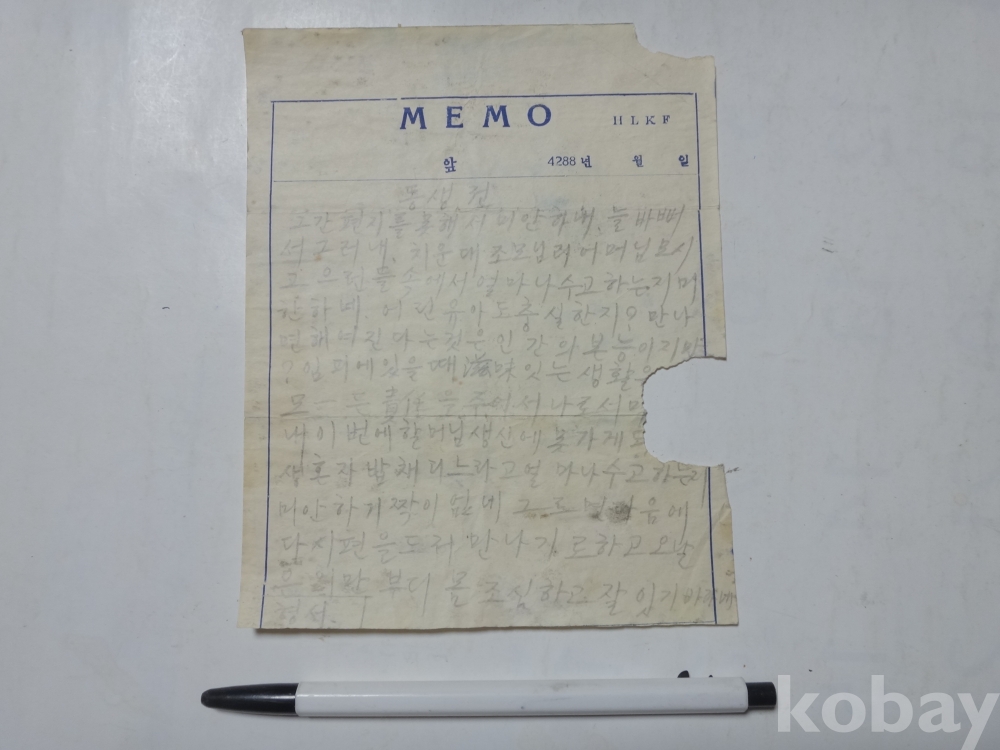 MEMO
HLKF
앞 4288년 월 일
동생 전
오간 편지를 못해서 미안하네. 늘 바뻐
서 구러내. 치운데 조모님과 어머님 모시
고 으린들 속에서 얼마나 수고하는지 머
안하네. 어린 유아도 충실한지? 만나
면 해여진다는 것은 인간의 본능이지마
? 임피에 있을 때 滋味잇는 생활
모ー든 責任을 주어서 나로서
내 이번에 할머님 생신에 못가게
생 혼자 밥채리느라고 얼마나 수고하는지
미안하기 짝이 없네 음에
답시편을도러 만나기로하고 오날
은 부디 몸 조심하고 잘 있기 바라네